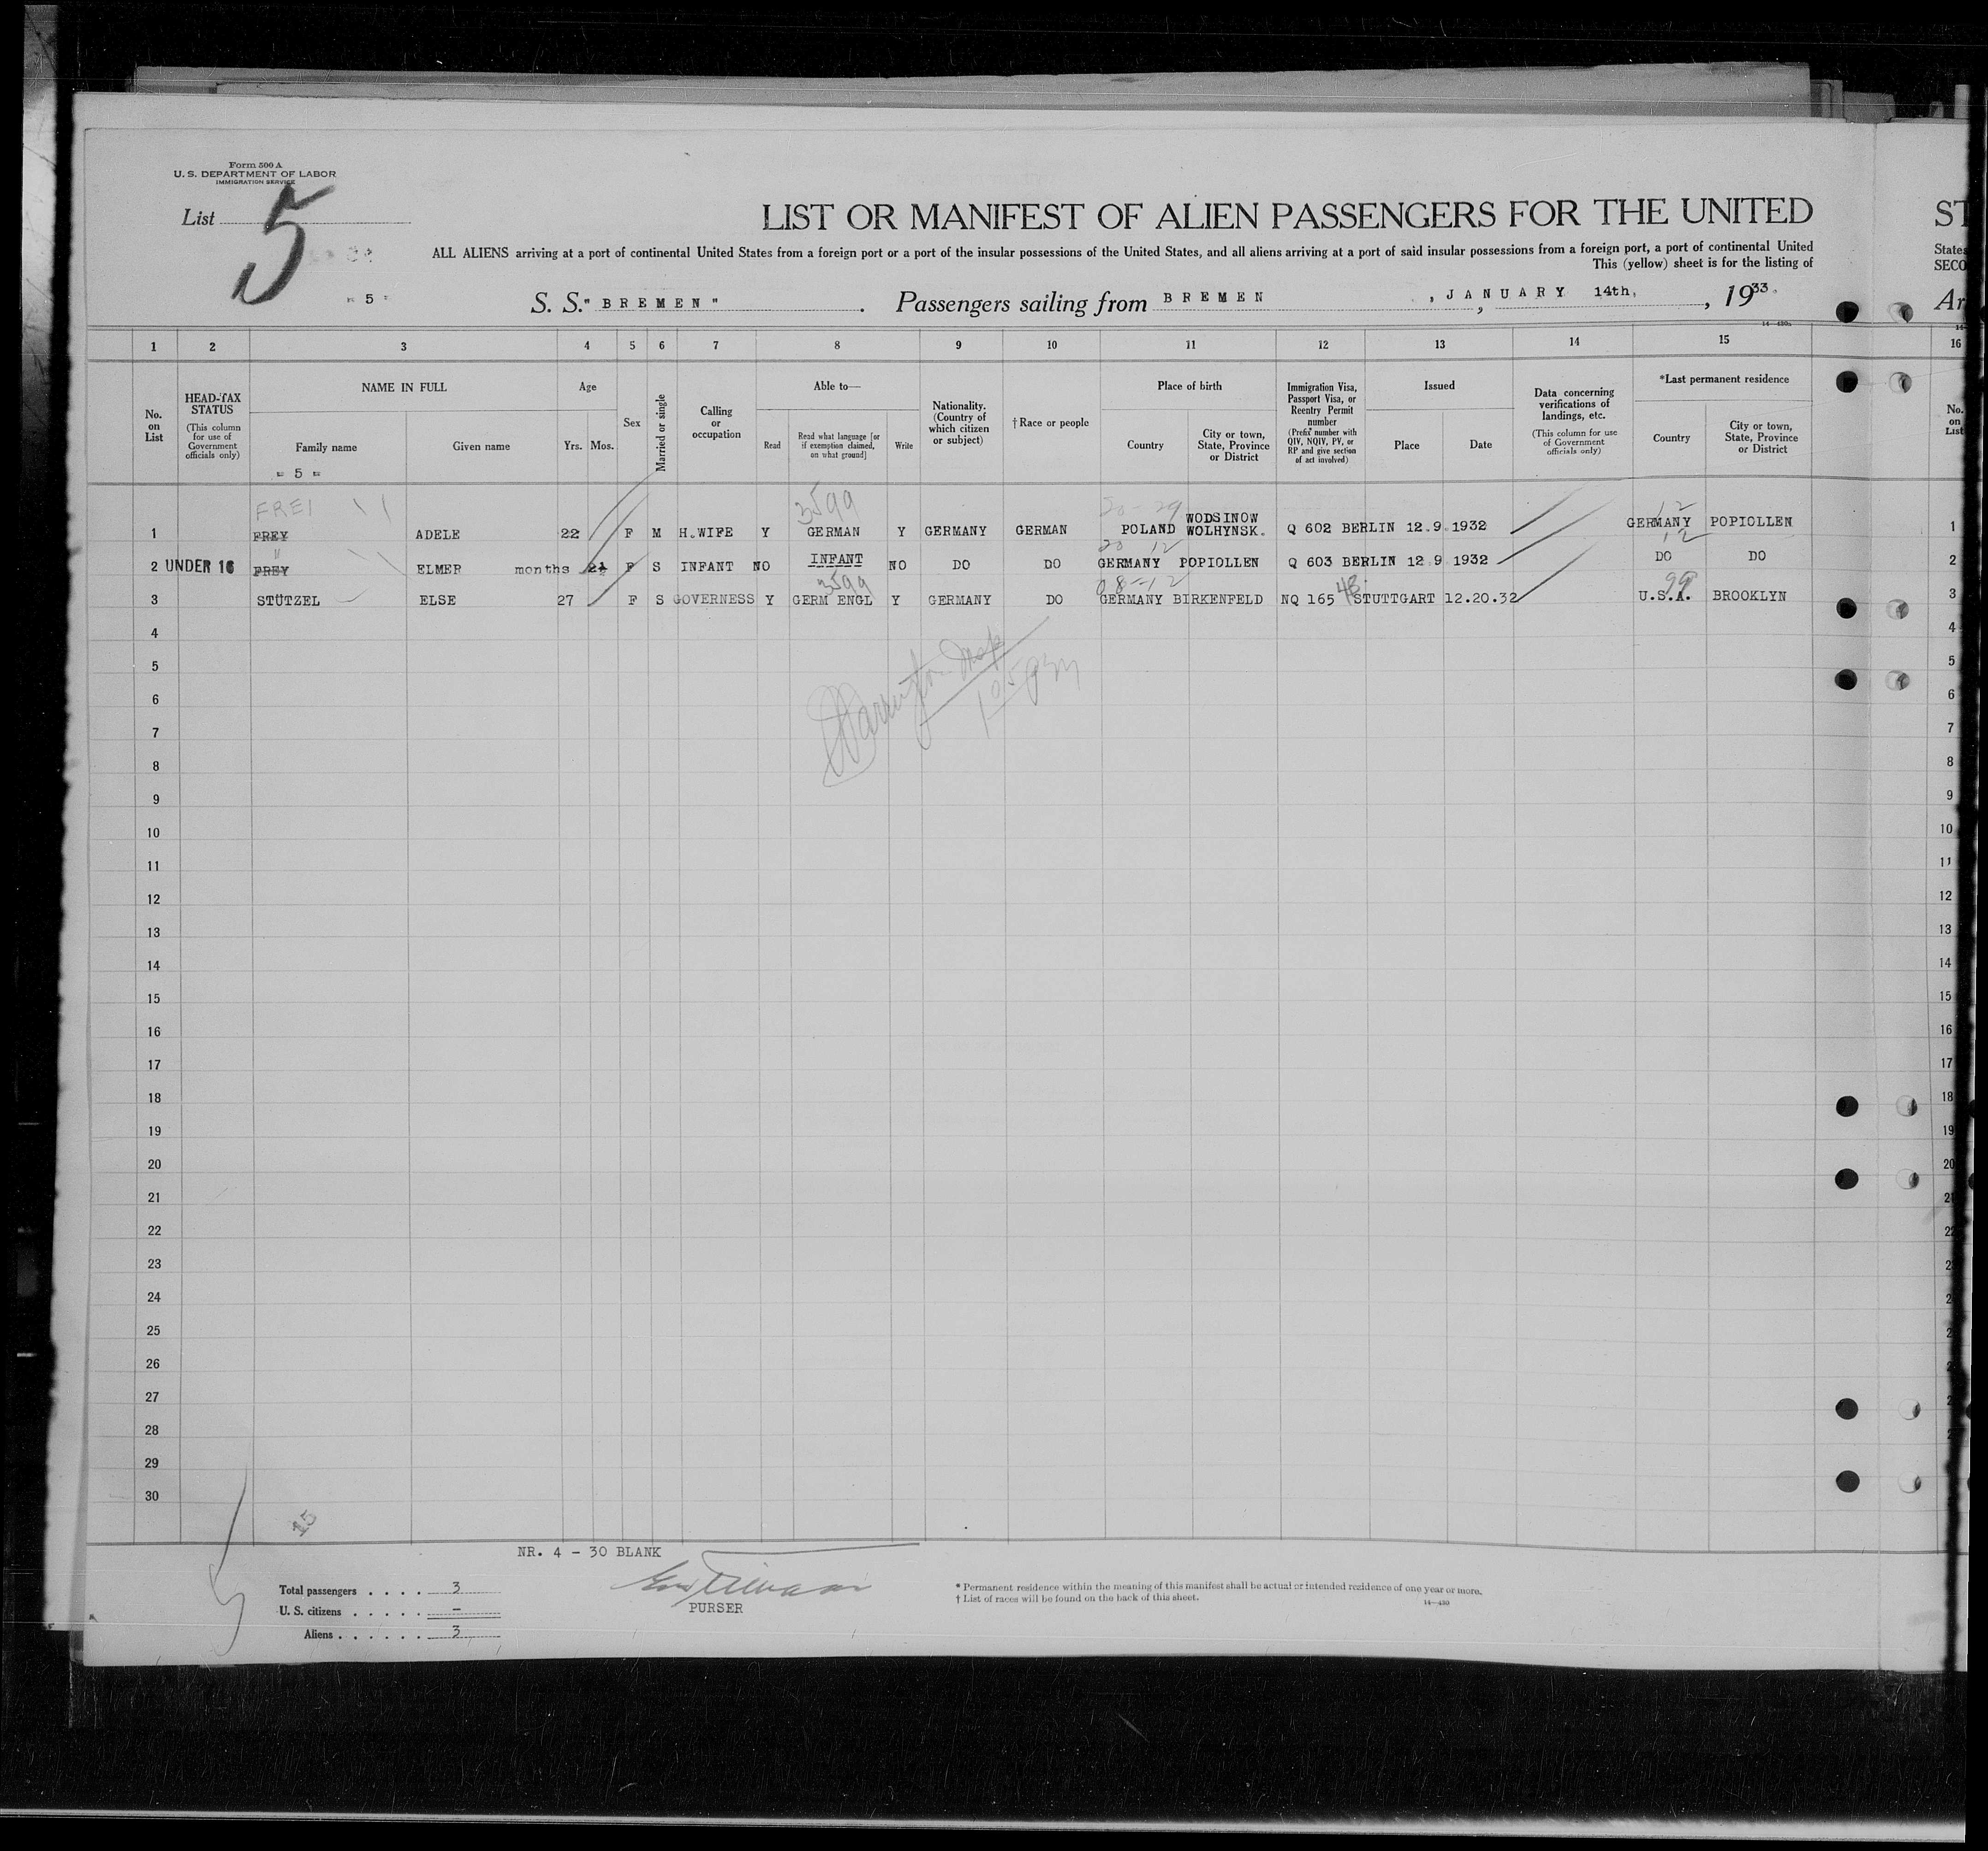 Form 500 A
U. S. DEPARTMENT OF LABOR
IMMIGRATION SERVICE
List 5
LIST OR MANIFEST OF ALIEN PASSENGERS FOR THE UNITED
ST
ALL ALIENS arriving at a port of continental United States from a foreign port or a port of the insular possessions of the United States, and all aliens arriving at a port of said insular possessions from a foreign port, a port of continental United
States
This (yellow) sheet is for the listing of
SECO
= 5 =
S. S. "BREMEN". Passengers sailing from BREMEN, JANUARY 14th, 1933.
Ar
1 2 3 4 5 6 7 8 9 10 11 12 13 14 15 16
No. on List
HEAD-TAX STATUS (This column for use of Government officials only)
NAME IN FULL
Family name
Given name
= 5 =
Age
Yrs. Mos.
Sex
Married or single
Calling or occupation
Able to—
Read
Read what language [or if exemption claimed, on what ground]
Write
Nationality. (Country of which citizen or subject)
† Race or people
Place of birth
Country
City or town, State, Province or District
Immigration Visa, Passport Visa, or Reentry Permit number (Prefix number with QIV, NQIV, PV, or RP and give section of act involved)
Issued
Place
Date
Data concerning verifications of landings, etc. (This column for use of Government officials only)
*Last permanent residence
Country
City or town, State, Province or District
No. on List
FREI 3599 20-29 WODSINOW 12
1 FREY ADELE 22 F M H.WIFE Y GERMAN Y GERMANY GERMAN POLAND WOLHYNSK. Q 602 BERLIN 12.9.1932 GERMANY POPIOLLEN 1
" 20 12 12
2 UNDER 16 FREY ELMER months F S INFANT NO INFANT NO DO DO GERMANY POPIOLLEN Q 603 BERLIN 12.9.1932 DO DO 2
3599 08-12 48 99
3 STÜTZEL ELSE 27 F S GOVERNESS Y GERM ENGL Y GERMANY DO GERMANY BIRKENFELD NQ 165 STUTTGART 12.20.32 U.S.A. BROOKLYN 3
4 4
5 5
6 6
7 7
8 8
9 9
10 10
11 11
12 12
13 13
14 14
15 15
16 16
17 17
18 18
19 19
20 20
21
22
23
24
25
26
27
28
29
30
15
NR. 4 - 30 BLANK
Total passengers . . . . 3
U. S. citizens . . . . . —
Aliens . . . . . . 3
PURSER
* Permanent residence within the meaning of this manifest shall be actual or intended residence of one year or more.
† List of races will be found on the back of this sheet.
14—430